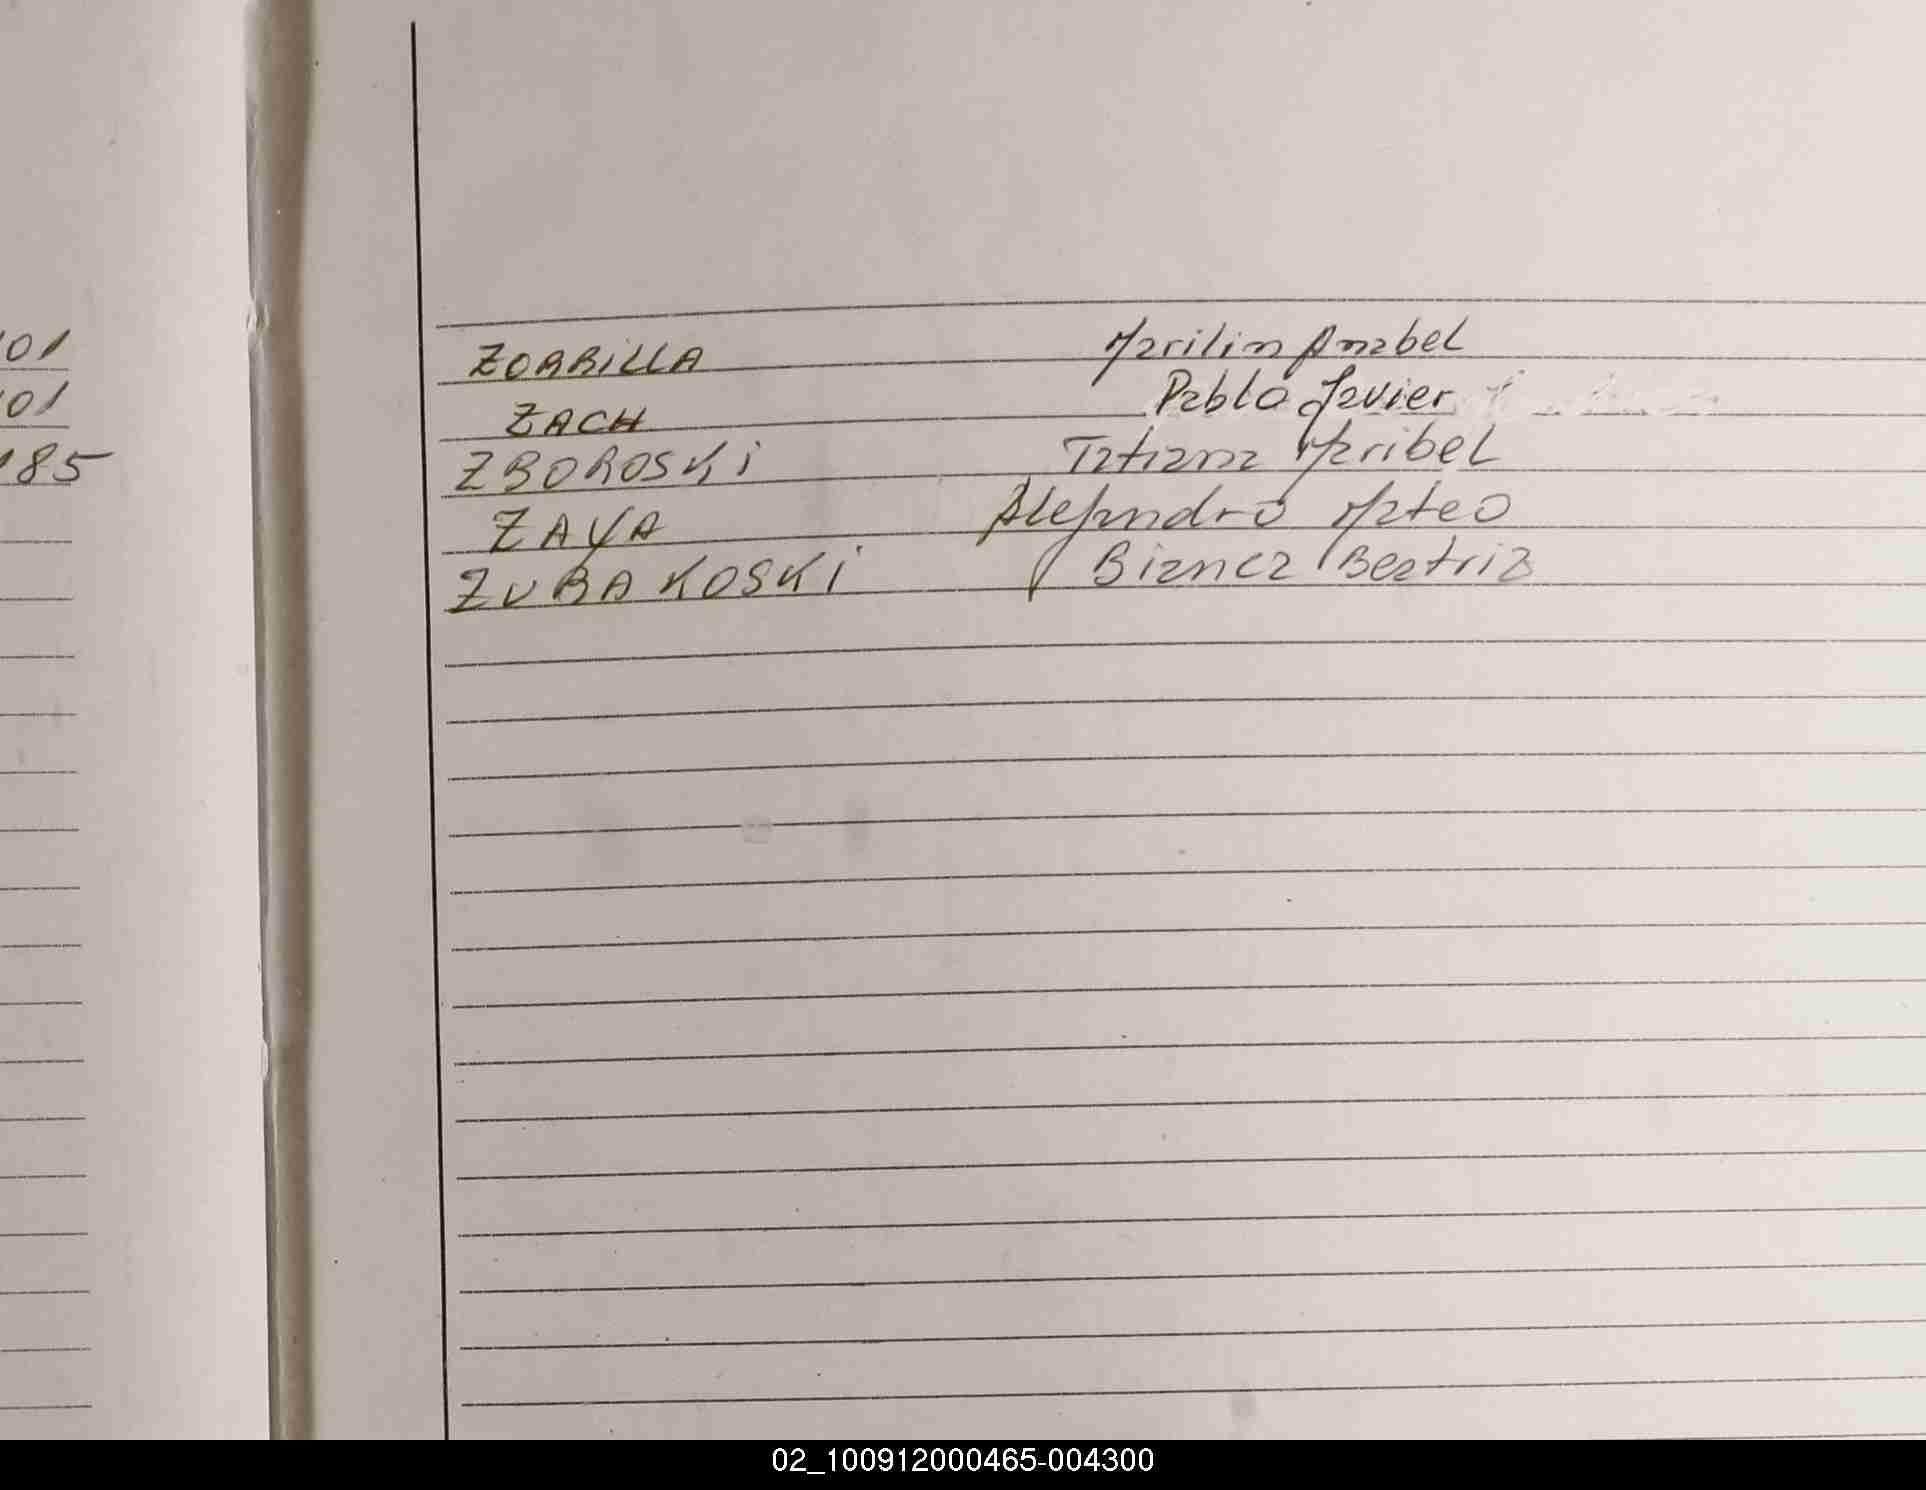 101
101
185
ZORRILLA Marilin Anabel
ZACH Pablo Javier
ZBOROSKI Tatiana Maribel
ZAYA Alejandro Mateo
ZUBAKOSKI Bianca Beatriz
02_100912000465-004300